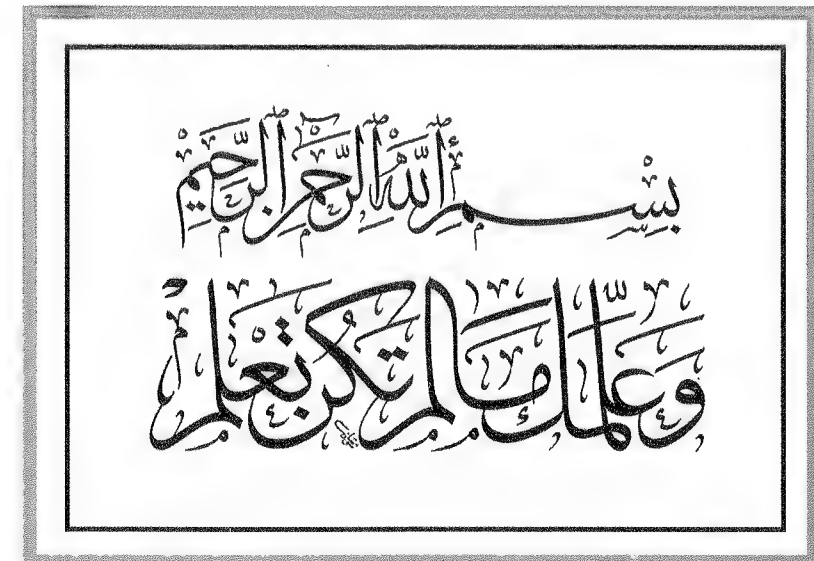 بِسْمِ ٱللَّهِ ٱلرَّحْمَٰنِ ٱلرَّحِيمِ
وَعَلَّمَكَ مَا لَمْ تَكُنْ تَعْلَمُ